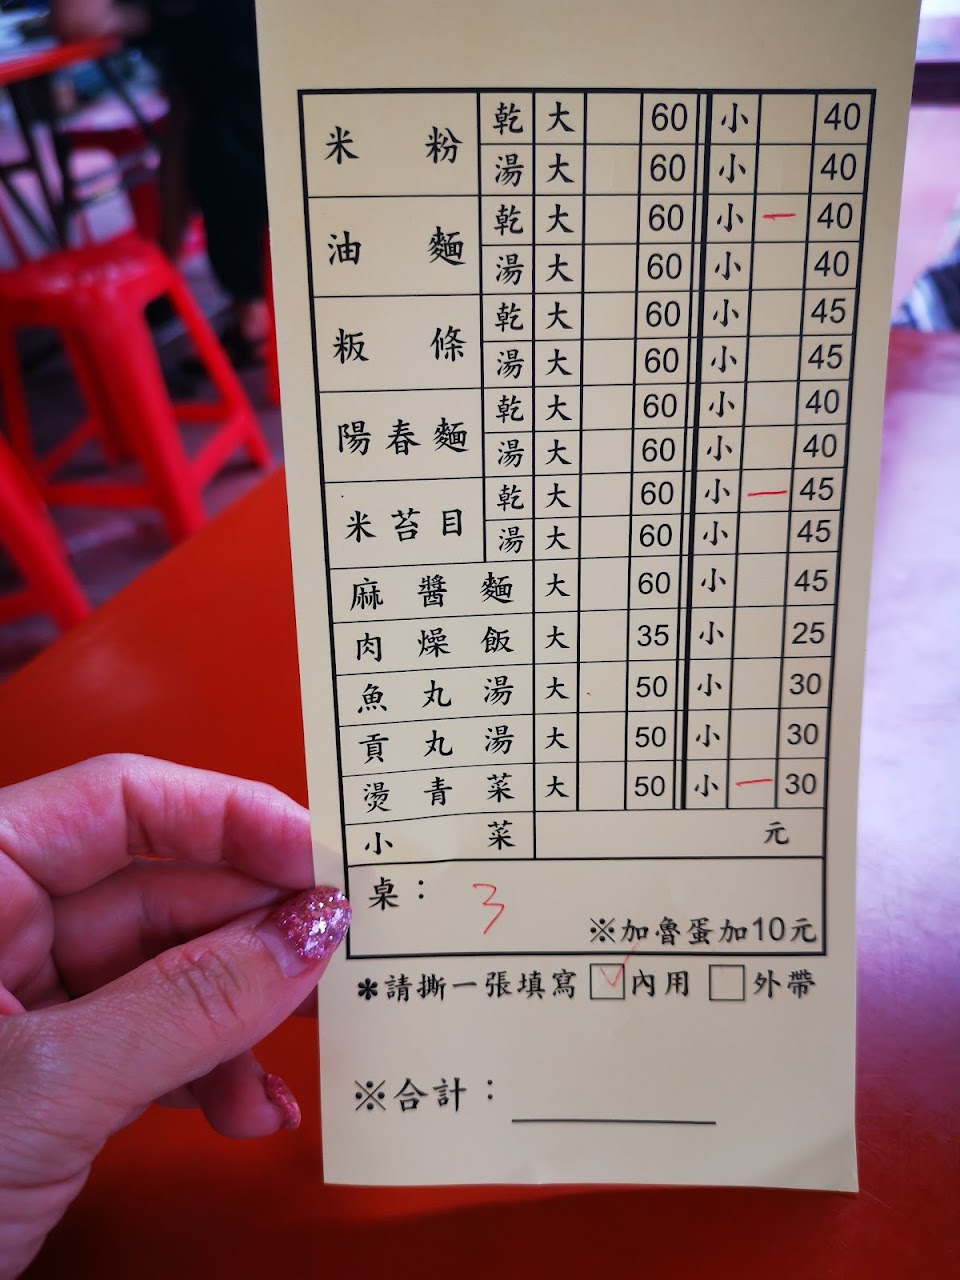 米粉 乾 大 60 小 40
湯 大 60 小 40
油麵 乾 大 60 小 一 40
湯 大 60 小 40
粄條 乾 大 60 小 45
湯 大 60 小 45
陽春麵 乾 大 60 小 40
湯 大 60 小 40
米苔目 乾 大 60 小 一 45
湯 大 60 小 45
麻醬麵 大 60 小 45
肉燥飯 大 35 小 25
魚丸湯 大 50 小 30
貢丸湯 大 50 小 30
燙青菜 大 50 小 一 30
小菜 元
桌：3
※加魯蛋加10元
✱請撕一張填寫 ☑內用 □外帶
※合計：